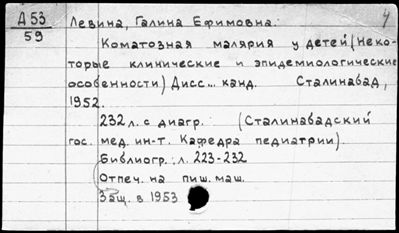 Д 53
59
4
Левина, Галина Ефимовна.
Коматозная малярия у детей (Неко-
торые клинические и эпидемиологические
особенности) Дисс... канд. Сталинабад,
1952.
232 л. с диагр. (Сталинабадский
гос. мед. ин-т. Кафедра педиатрии).
Библиогр.: л. 223-232
Отпеч. на пиш. маш.
Защ. в 1953